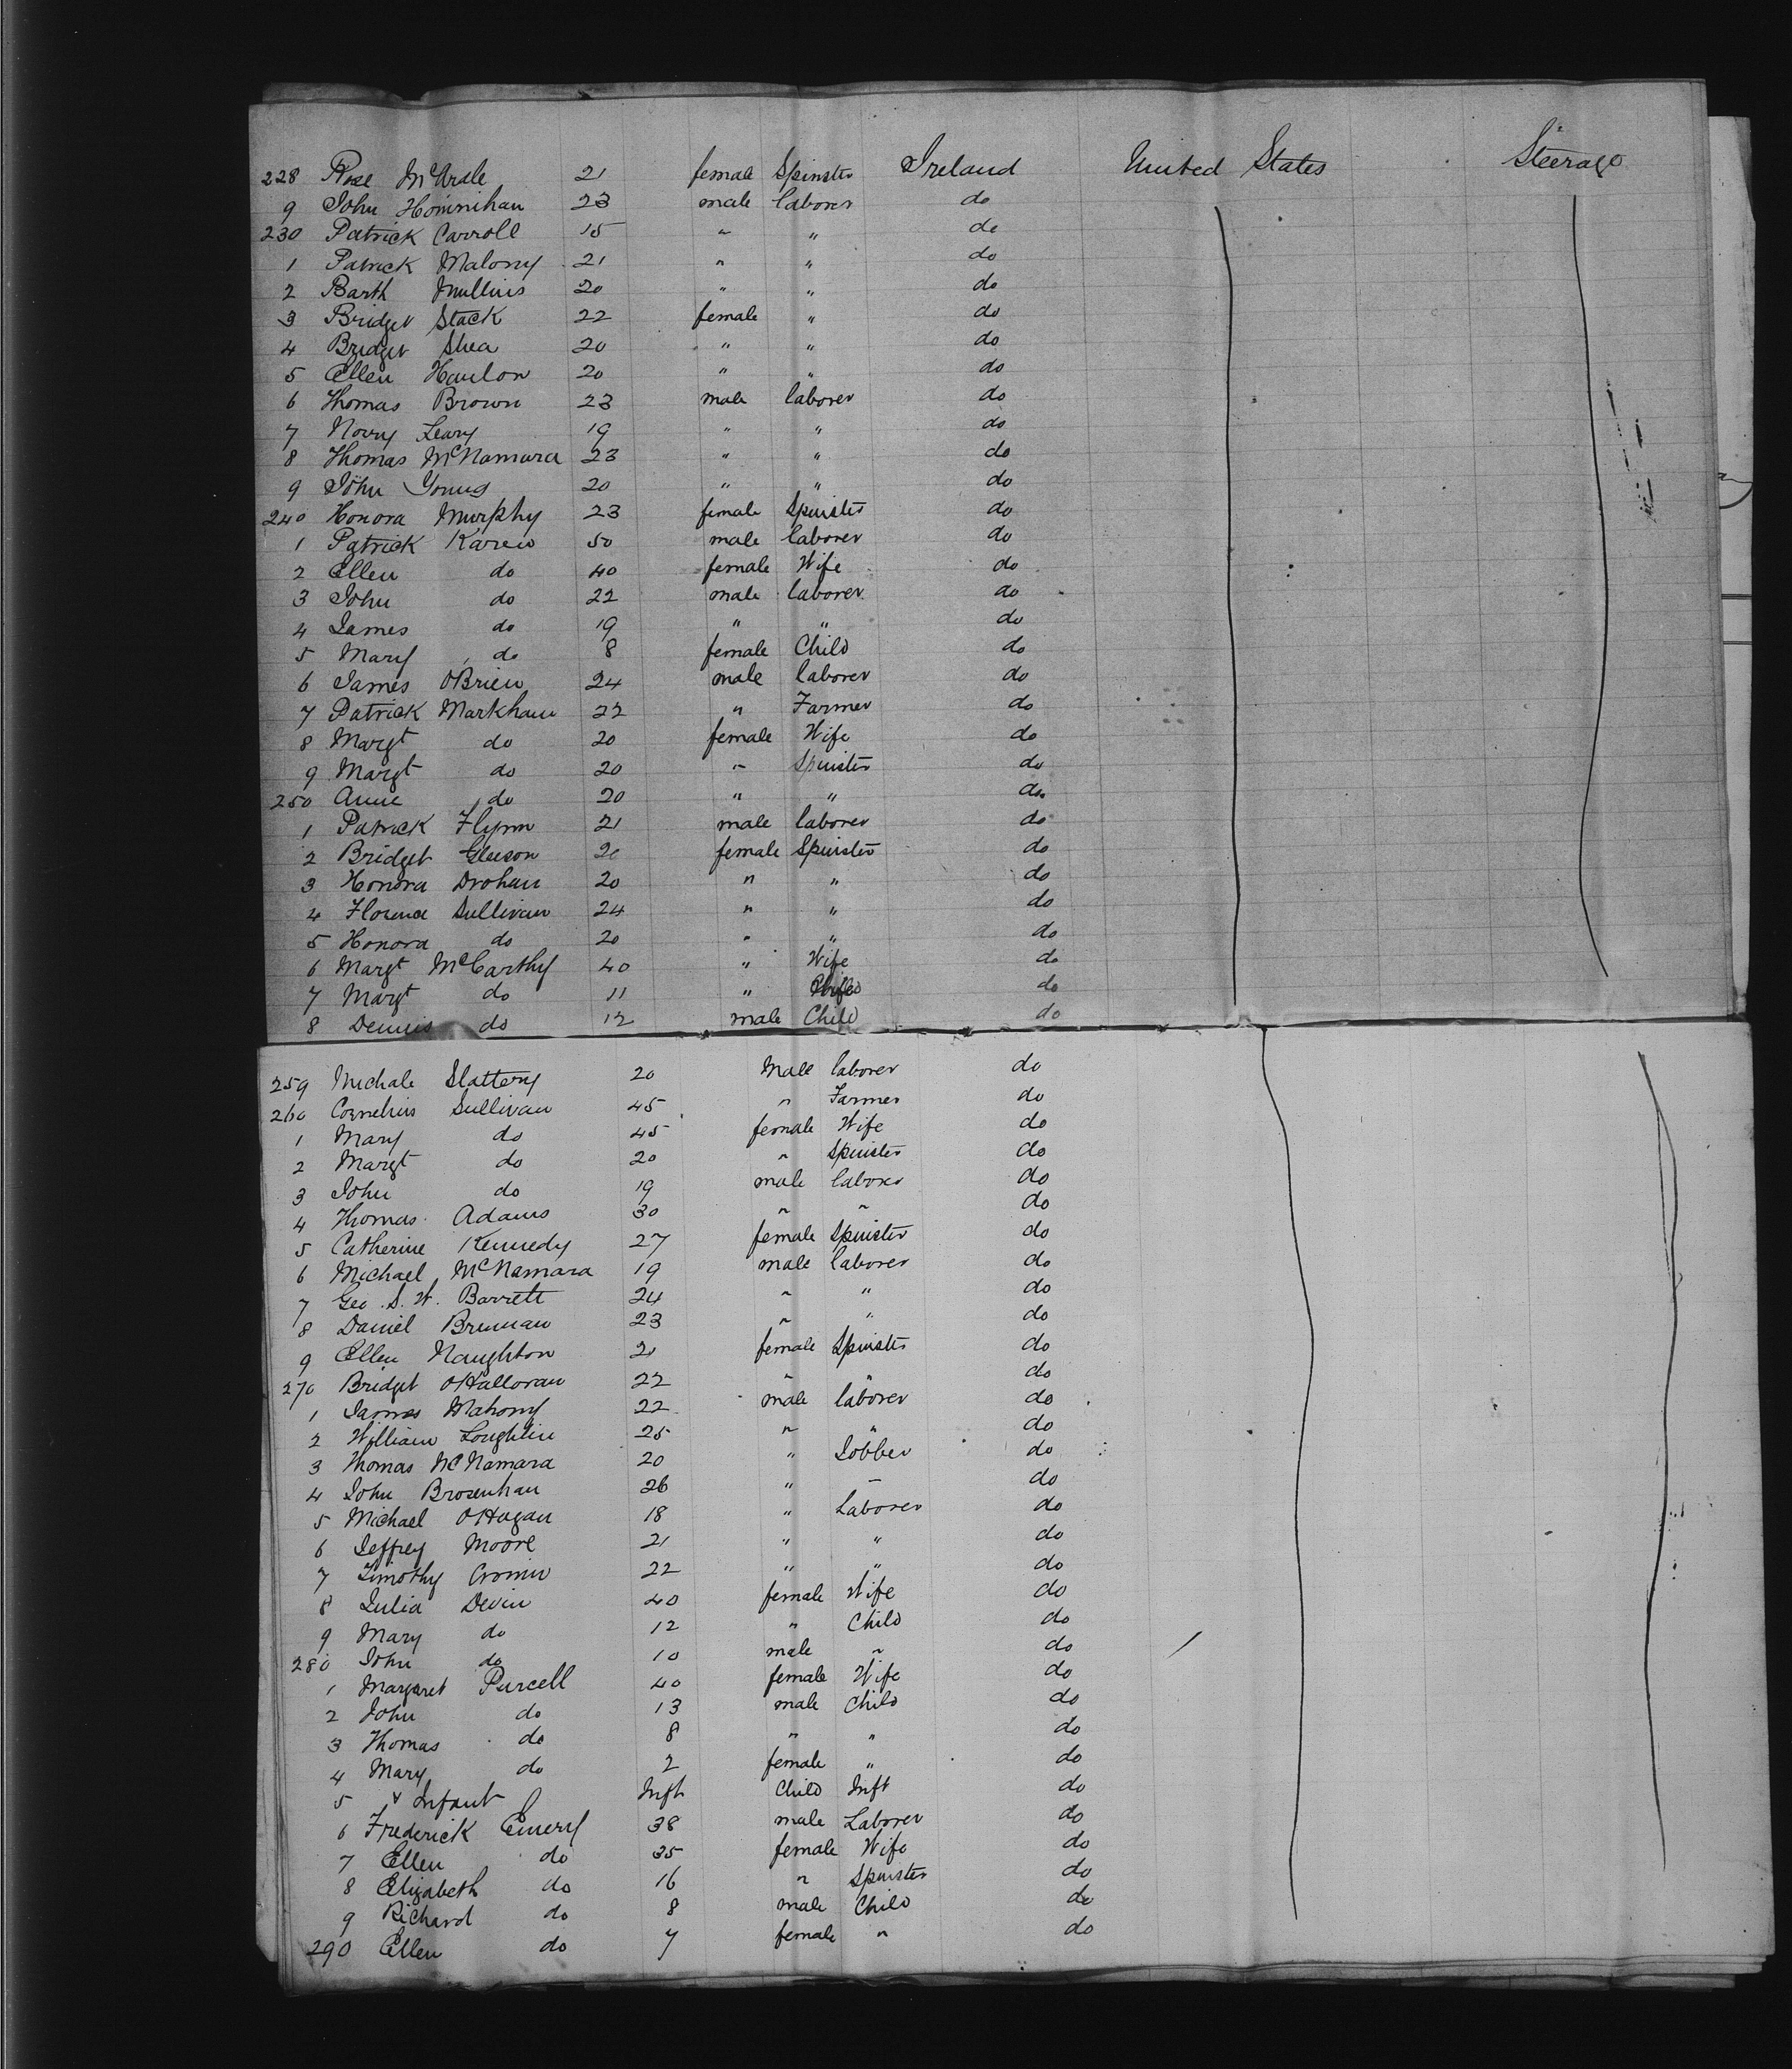 228 Rose McArdle 21 female Spinster Ireland United States Steerage
9 John Hominihan 23 male laborer do
230 Patrick Carroll 15 " " do
1 Patrick Malony 21 " " do
2 Barth Mullins 20 " " do
3 Bridget Stack 22 female " do
4 Bridget Shea 20 " " do
5 Ellen Hanlon 20 " " do
6 Thomas Brown 23 male laborer do
7 Leary 19 " " do
8 Thomas McNamara 23 " " do
9 John Young 20 " " do
240 Honora Murphy 23 female Spinster do
1 Patrick Karew 50 male laborer do
2 Ellen do 40 female Wife do
3 John do 22 male laborer do
4 James do 19 " " do
5 Mary do 8 female Child do
6 James OBrien 24 male laborer do
7 Patrick Markham 22 " Farmer do
8 Margt do 20 female Wife do
9 Margt do 20 " Spinster do
250 Anne do 20 " " do
1 Patrick Flynn 21 male laborer do
2 Bridget Gleeson 20 female Spinster do
3 Honora Drohan 20 " " do
4 Florence Sullivan 24 " " do
5 Honora do 20 " " do
6 Margt McCarthy 40 " Wife do
7 Margt do 11 " do
8 Dennis do 12 male Child do
259 Michale Slattery 20 Male laborer do
260 Cornelius Sullivan 45 " Farmer do
1 Mary do 45 female Wife do
2 Margt do 20 " Spinster do
3 John do 19 male laborer do
4 Thomas Adams 30 " " do
5 Catherine Kennedy 27 female Spinster do
6 Michael McNamara 19 male laborer do
7 Geo. S. W. Barrett 24 " " do
8 Daniel Brennan 23 " " do
9 Ellen Naughton 21 female Spinster do
270 Bridget OHalloran 22 " " do
1 James Mahony 22 male laborer do
2 William Loughlin 25 " " do
3 Thomas McNamara 20 " Jobber do
4 John Brosenhan 26 " – do
5 Michael OHogan 18 " Laborer do
6 Jeffrey Moore 21 " " do
7 Timothy Cronin 22 " " do
8 Julia Devin 40 female Wife do
9 Mary do 12 " Child do
280 John do 10 male " do
1 Margaret Purcell 40 female Wife do
2 John do 13 male Child do
3 Thomas do 8 " " do
4 Mary do 2 female " do
5 Infant Inft Child Inft do
6 Frederick Emery 38 male Laborer do
7 Ellen do 35 female Wife do
8 Elizabeth do 16 " Spinster do
9 Richard do 8 male Child do
290 Ellen do 7 female " do